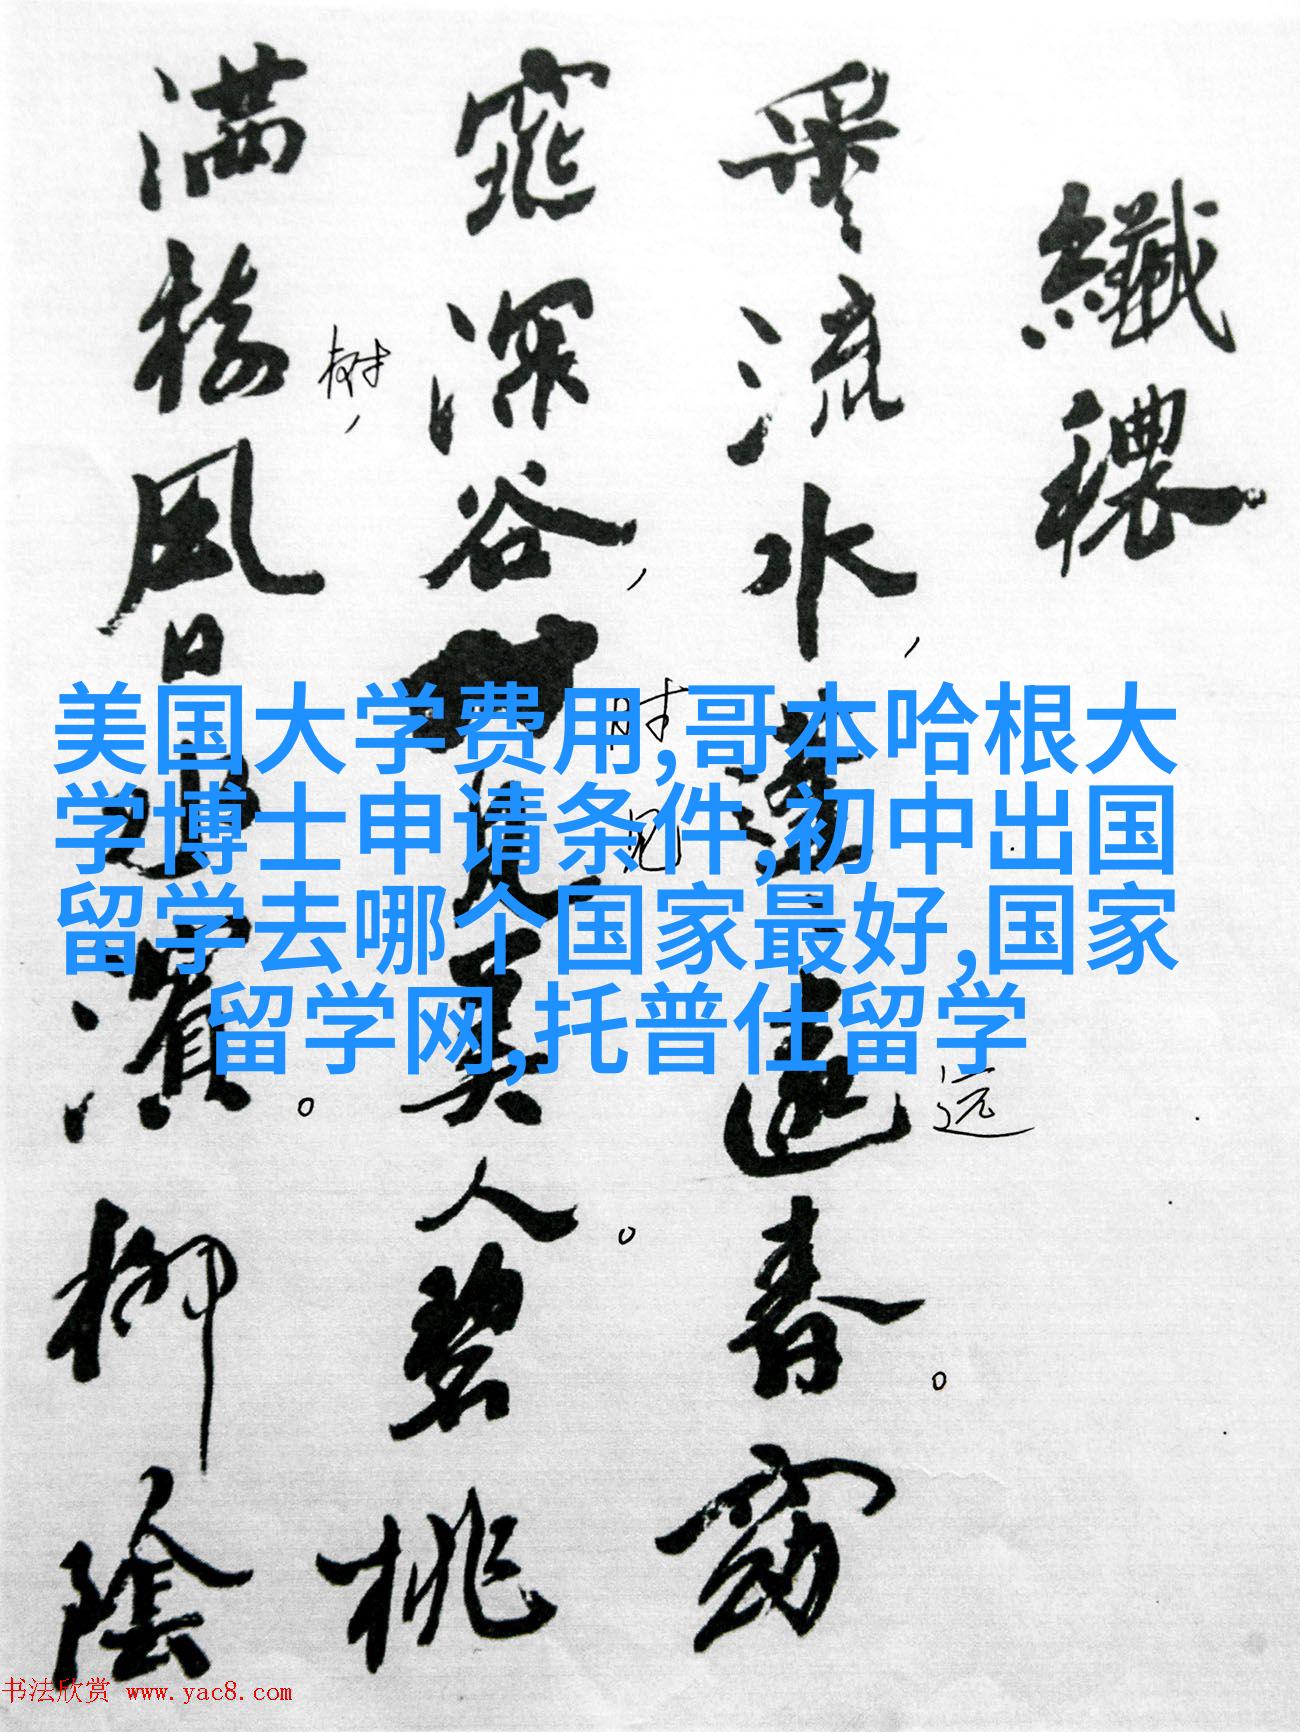 纖穠
采々流水,蓬々遠春。窈
远
窕深谷,見美人。碧桃
时
见
满樹,風日水濱。柳陰
树
美国大学费用,哥本哈根大
学博士申请条件,初中出国
留学去哪个国家最好,国家
留学网,托普仕留学
书法欣赏 www.yac8.com